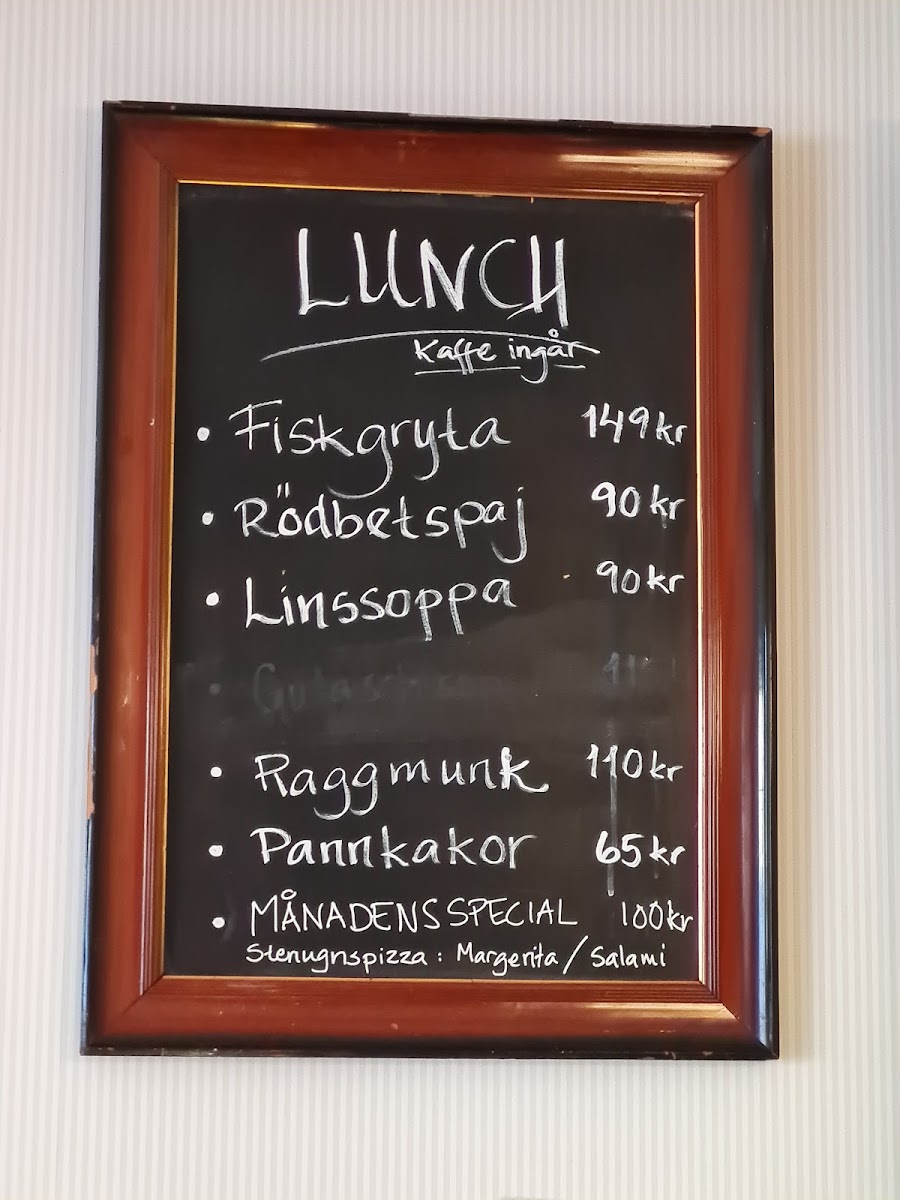 LUNCH
Kaffe ingår
• Fiskgryta 149 kr
• Rödbetspaj 90 kr
• Linssoppa 90 kr
• Raggmunk 110 kr
• Pannkakor 65 kr
• MÅNADENS SPECIAL 100 kr
Stenugnspizza : Margerita / Salami